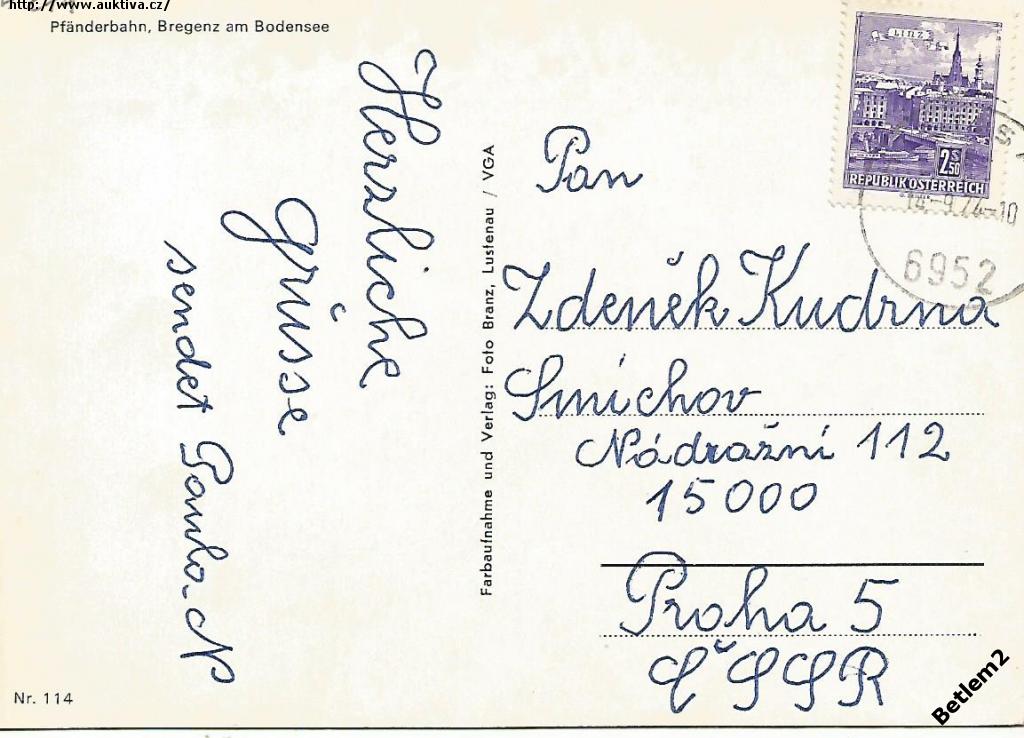 http://www.auktiva.cz/
Pfänderbahn, Bregenz am Bodensee
Herzliche
grüsse
sendet Pavlo-N
Farbaufnahme und Verlag: Foto Branz, Lustenau / VGA
LINZ
2S50
REPUBLIK ÖSTERREICH
14-9.74-10
6952
Pan
Zdeněk Kudrna
Smíchov
Nádražní 112
15000
Praha 5
ČSSR
Nr. 114
Betlem2